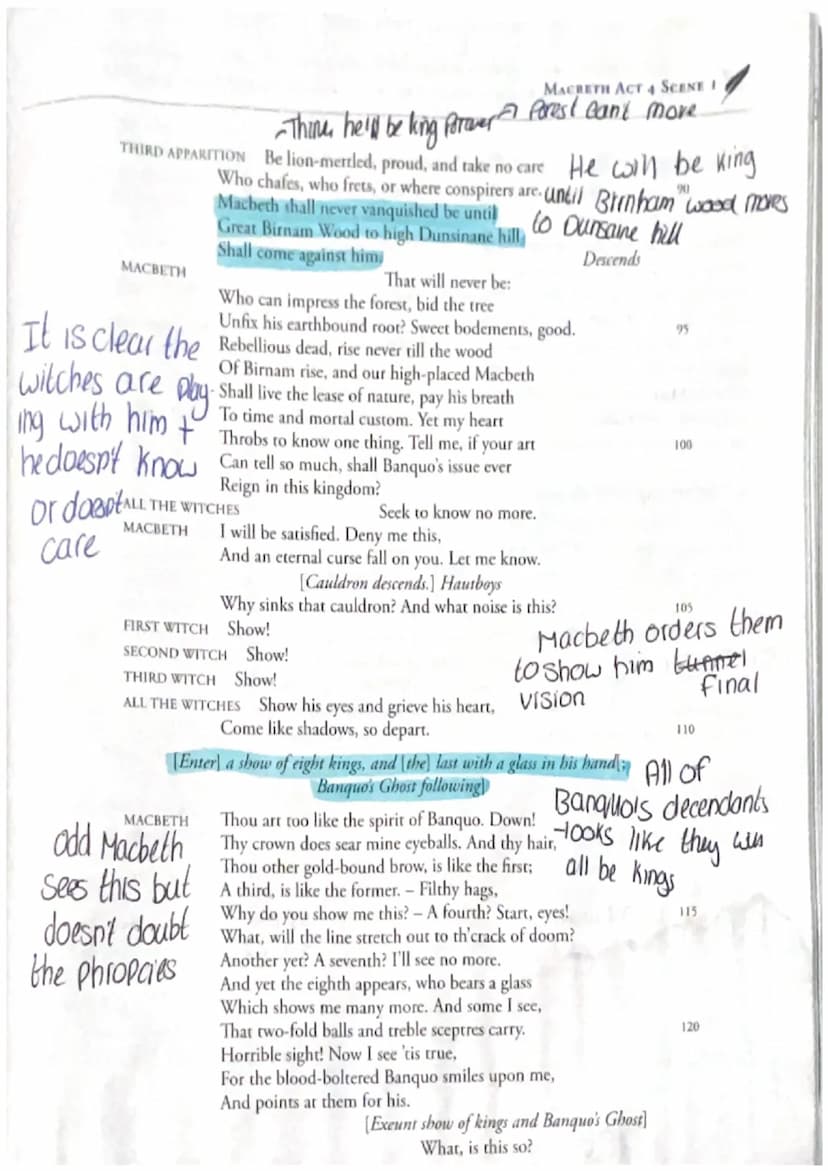 MACBETH ACT 4 SCENE 1
forest can't move
he'll be king forever
THIRD APPARITION Be lion-mettled, proud, and take no care
He will be king
Who chafes, who frets, or where conspirers are.
90
until Birnham wood moves
Macbeth shall never vanquished be until
Great Birnam Wood to high Dunsinane hill
to Dunsane hill
Shall come against him.
Descends
MACBETH That will never be:
Who can impress the forest, bid the tree
Unfix his earthbound root? Sweet bodements, good. 95
Rebellious dead, rise never till the wood
Of Birnam rise, and our high-placed Macbeth
Shall live the lease of nature, pay his breath
To time and mortal custom. Yet my heart
Throbs to know one thing. Tell me, if your art 100
Can tell so much, shall Banquo's issue ever
Reign in this kingdom?
It is clear the
witches are play-
ing with him +
he doesn't know
or doesnt
care
ALL THE WITCHES Seek to know no more.
MACBETH I will be satisfied. Deny me this,
And an eternal curse fall on you. Let me know.
[Cauldron descends.] Hautboys
Why sinks that cauldron? And what noise is this? 105
FIRST WITCH Show!
SECOND WITCH Show!
THIRD WITCH Show!
Macbeth orders them
to show him tunnel
final
vision
ALL THE WITCHES Show his eyes and grieve his heart,
Come like shadows, so depart. 110
[Enter] a show of eight kings, and [the] last with a glass in his hand[;
Banquo's Ghost following]
All of
Banquo's decendants
-looks like they will
all be kings
MACBETH Thou art too like the spirit of Banquo. Down!
Thy crown does sear mine eyeballs. And thy hair,
Thou other gold-bound brow, is like the first;
A third, is like the former. – Filthy hags,
Why do you show me this? – A fourth? Start, eyes! 115
What, will the line stretch out to th'crack of doom?
Another yet? A seventh? I'll see no more.
And yet the eighth appears, who bears a glass
Which shows me many more. And some I see,
That two-fold balls and treble sceptres carry. 120
Horrible sight! Now I see 'tis true,
For the blood-boltered Banquo smiles upon me,
And points at them for his.
odd Macbeth
sees this but
doesn't doubt
the phropcies
[Exeunt show of kings and Banquo's Ghost]
What, is this so?